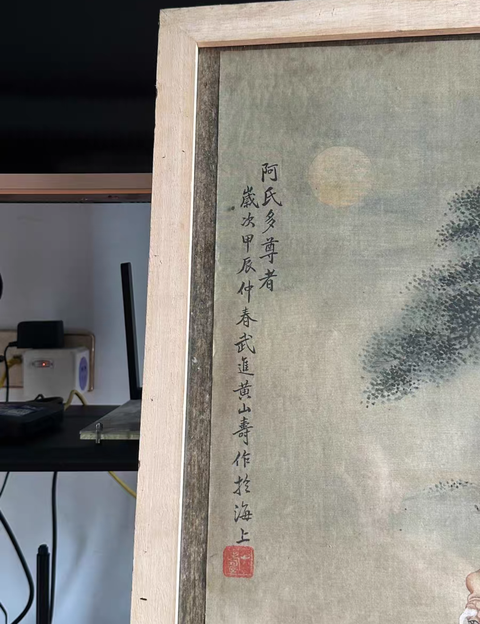 阿氏多尊者
歲次甲辰仲春武進黃山壽作於海上